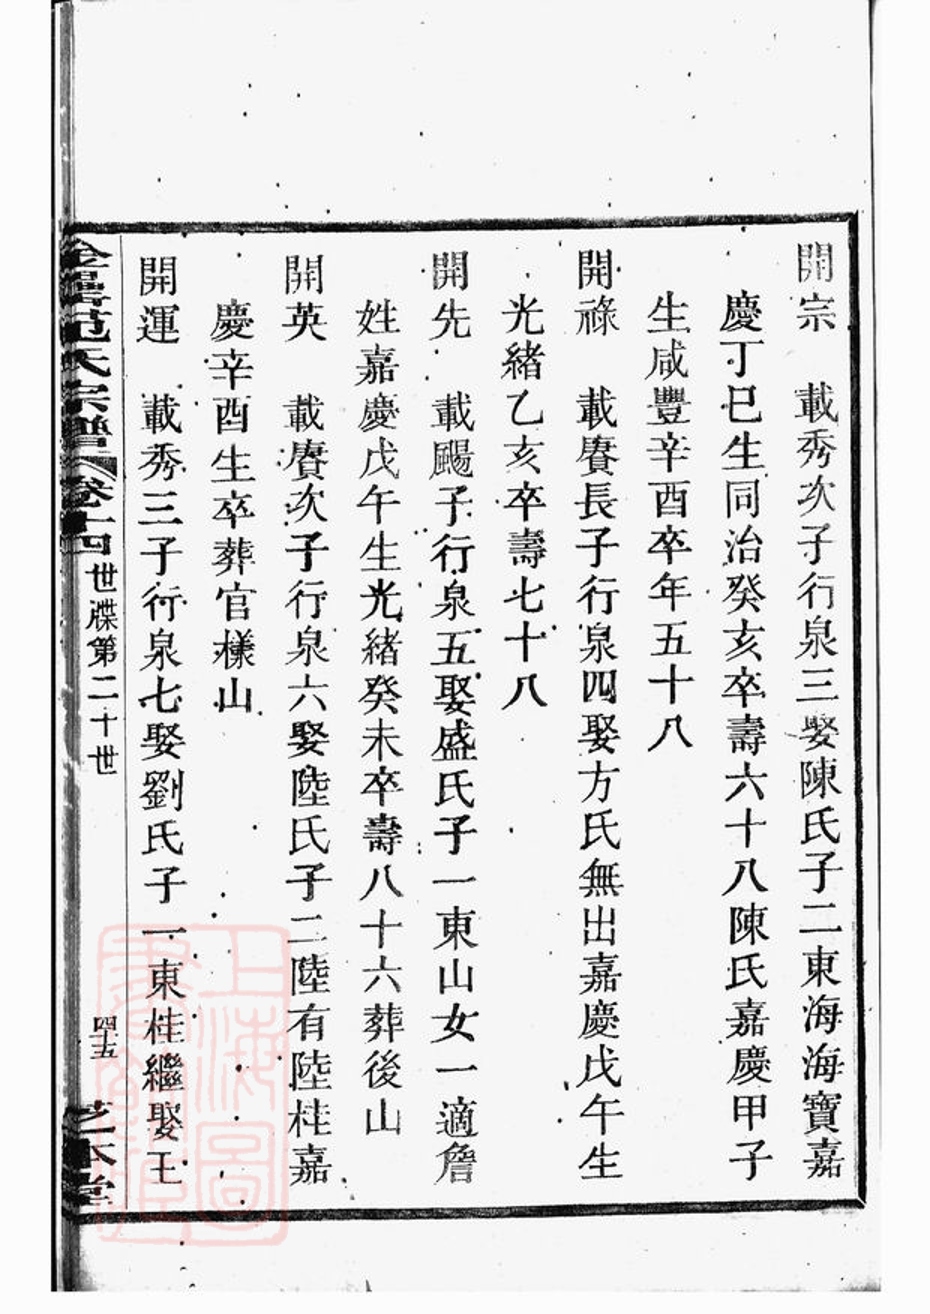 開宗　載秀次子行泉三娶陳氏子二東海海寶嘉
慶丁巳生同治癸亥卒壽六十八陳氏嘉慶甲子
生咸豐辛酉卒年五十八
開祿　載賡長子行泉四娶方氏無出嘉慶戊午生
光緒乙亥卒壽七十八
開先　載颺子行泉五娶盛氏子一東山女一適詹
姓嘉慶戊午生光緒癸未卒壽八十六葬後山
開英　載賡次子行泉六娶陸氏子二陸有陸桂嘉
慶辛酉生卒葬官樣山
開運　載秀三子行泉七娶劉氏子一東桂繼娶王
范氏宗譜 卷十四 世牒第二十世 四十五 本堂
上海圖